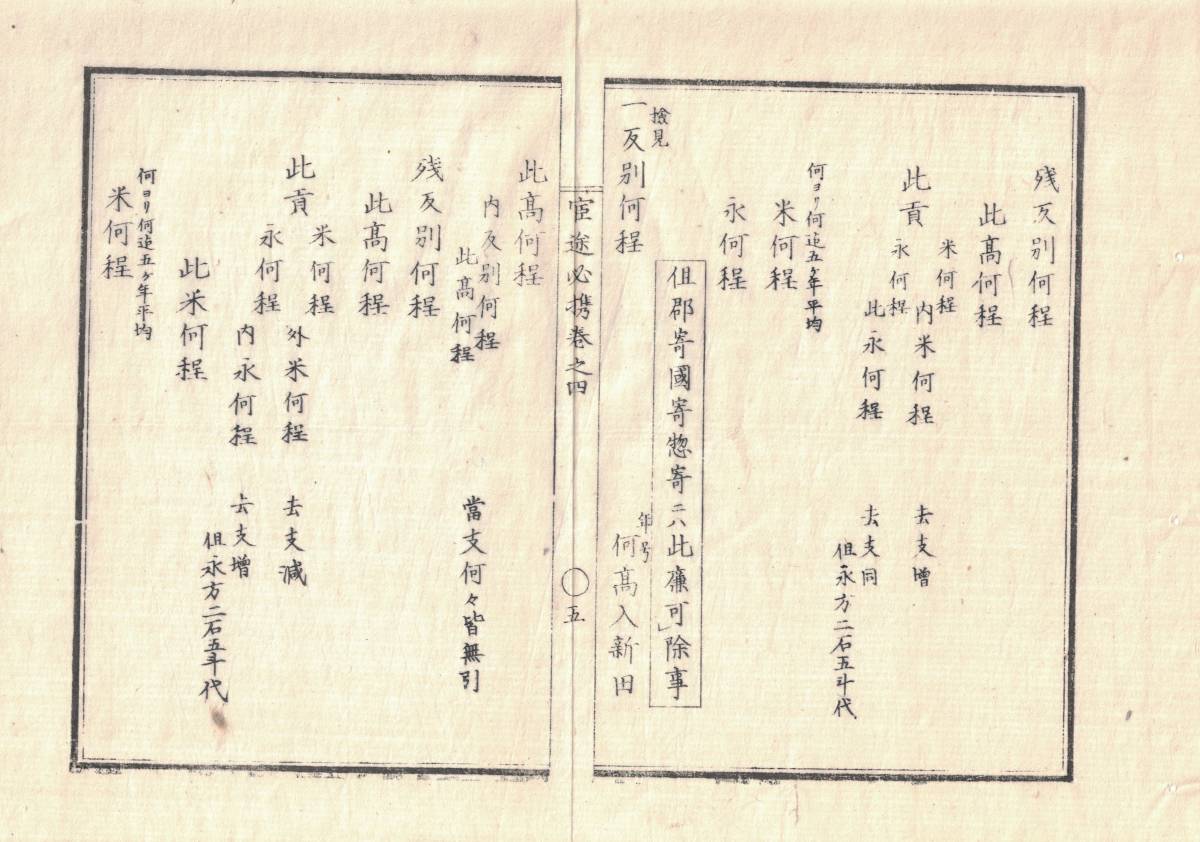 残反別何程
此高何程
此貢
米何程
永何程
内米何程
去支増
此永何程
去支同
但永方二石五斗代
何ヨリ何迄五ケ年平均
米何程
永何程
但郡寄國寄惣寄ニハ此廉可除事
検見
一反別何程
年号
何高入新田
宦途必携巻之四
五
此高何程
内反別何程
此高何程
當支何々皆無引
残反別何程
此高何程
此貢
米何程
永何程
外米何程
去支減
内永何程
去支増
但永方二石五斗代
此米何程
何ヨリ何迄五ケ年平均
米何程